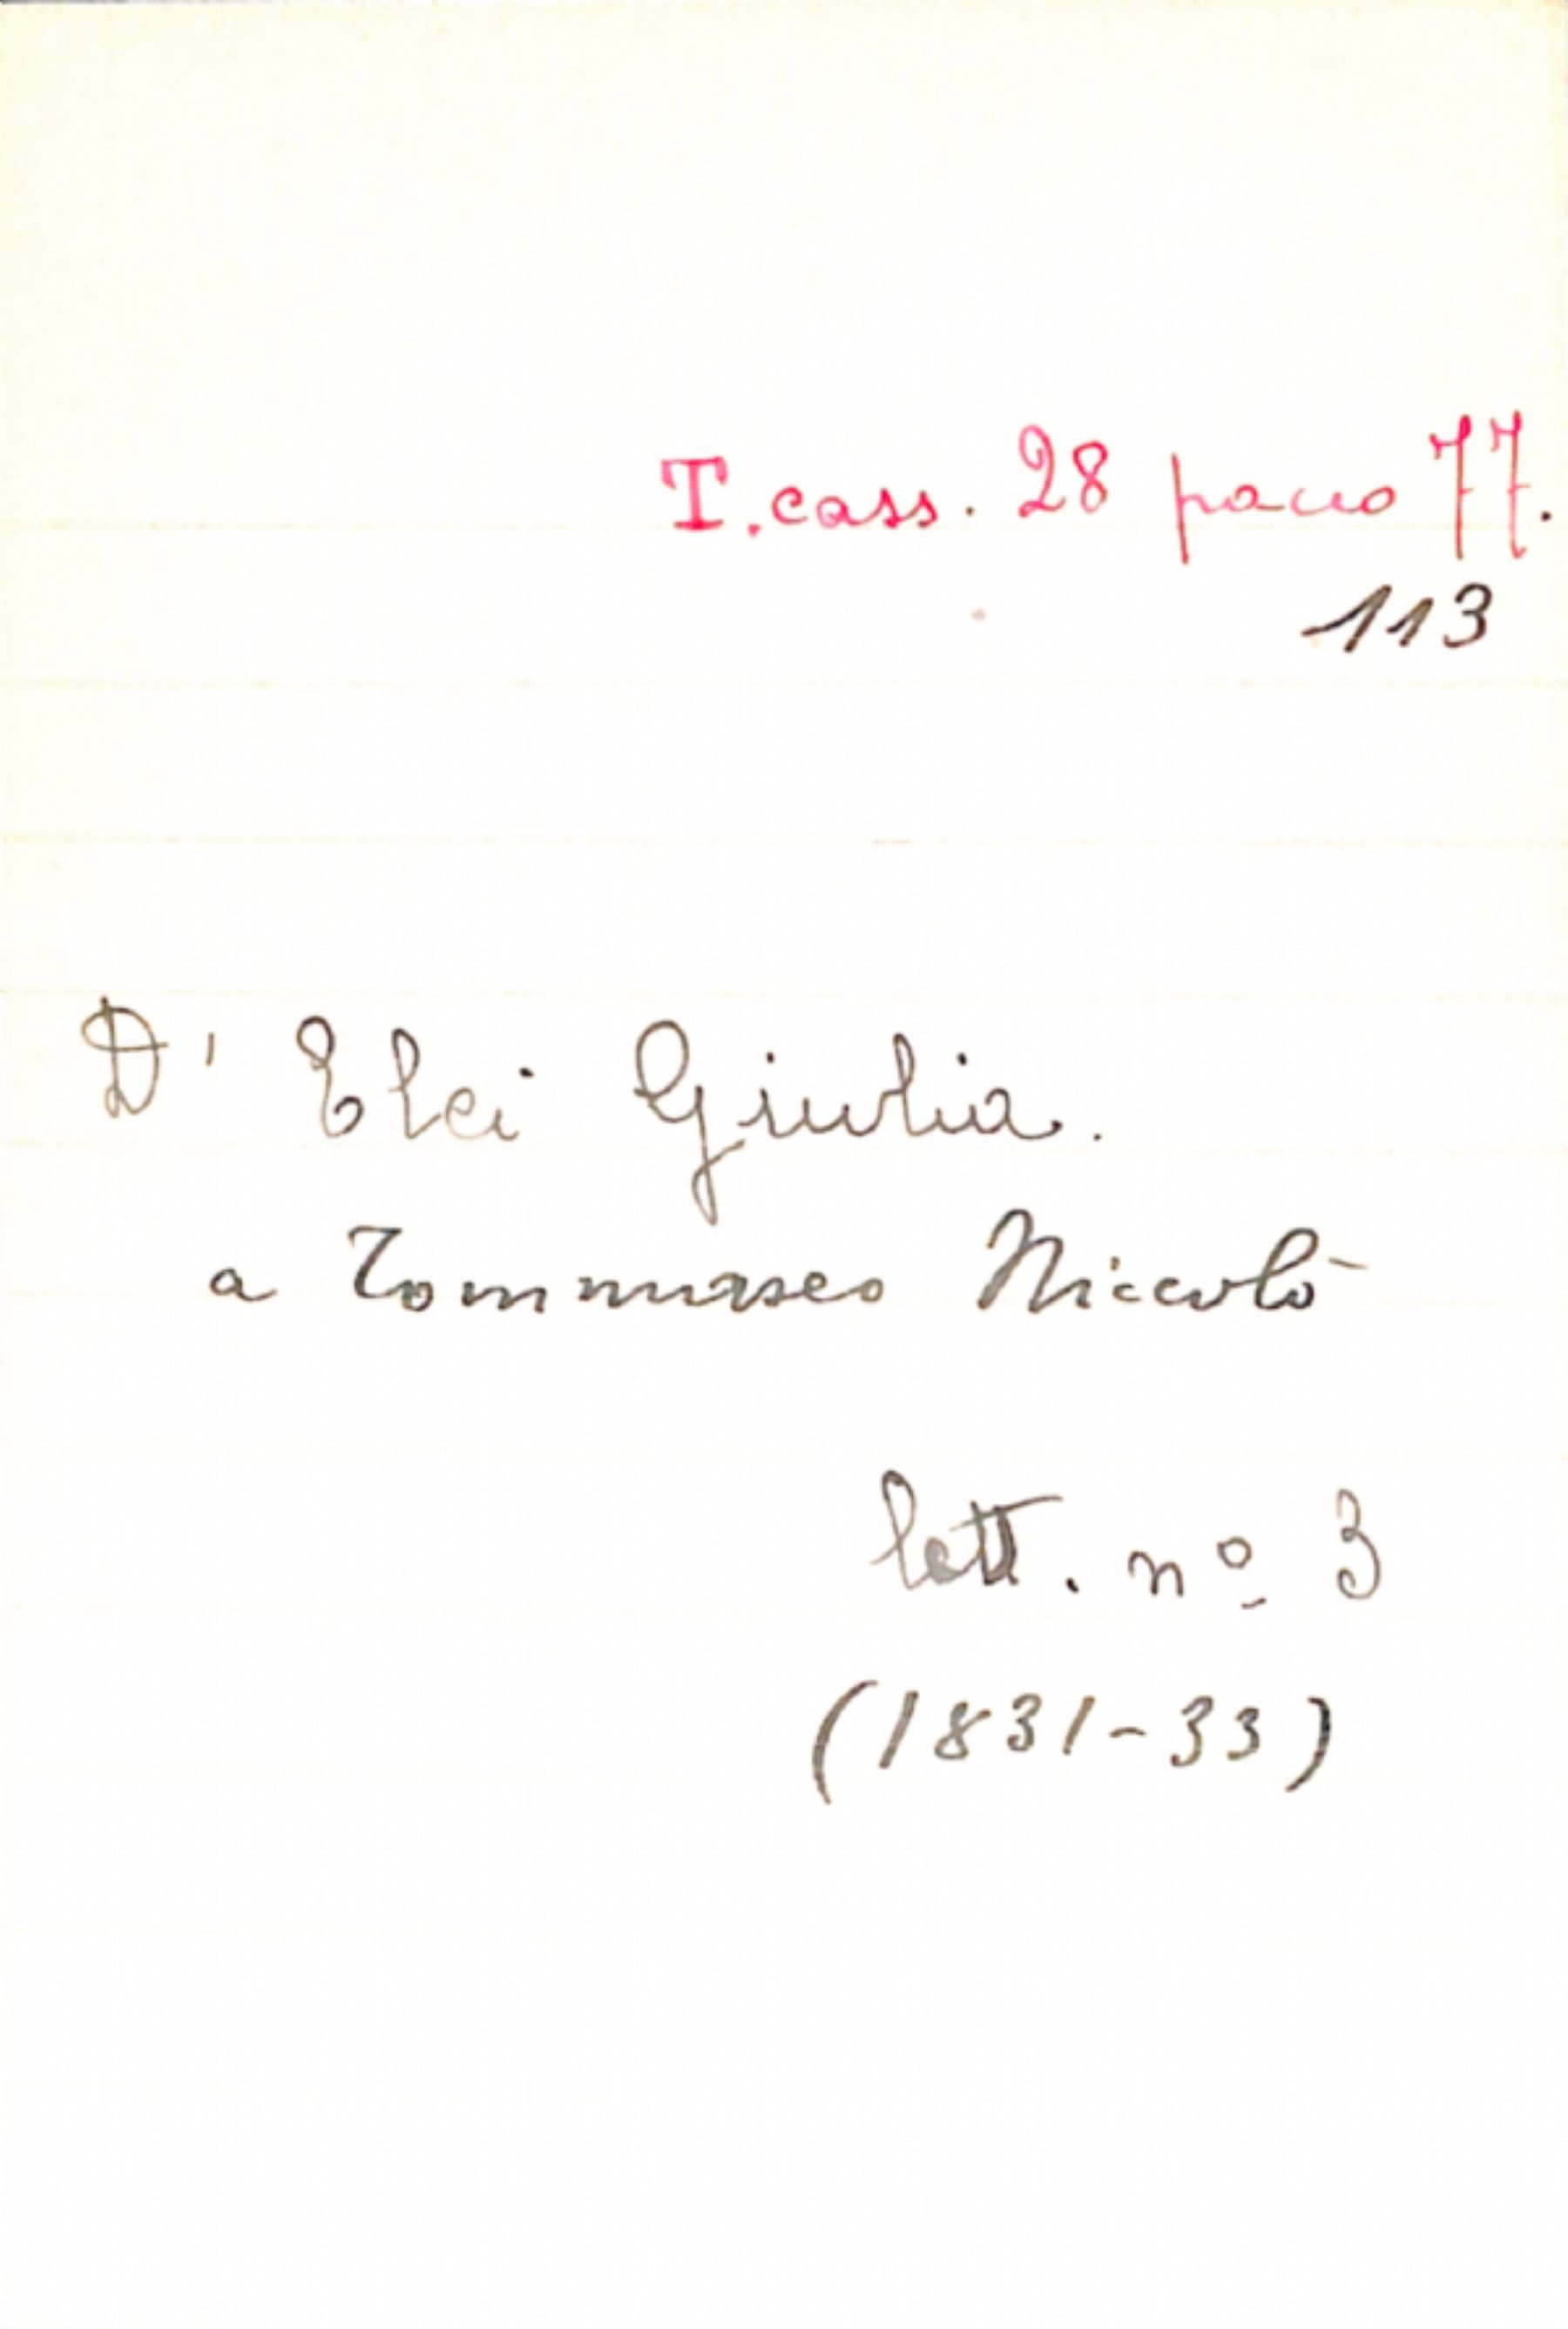 T. cass. 28 pacco 77.
113
D' Elci Giulia.
a Tommaseo Niccolò
lett. nº 3
(1831-33)